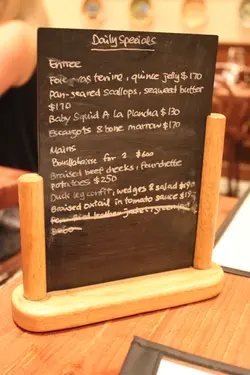 Daily Specials
Entree
Foie gras terrine, quince jelly $170
Pan-seared scallops, seaweed butter
$170
Baby Squid A La Plancha $130
Escargots & bone marrow $170
Mains
for 2 $600
Braised beef cheeks, fourchette
potatoes $250
Duck leg confit, wedges & salad $190
Braised oxtail in tomato sauce $190